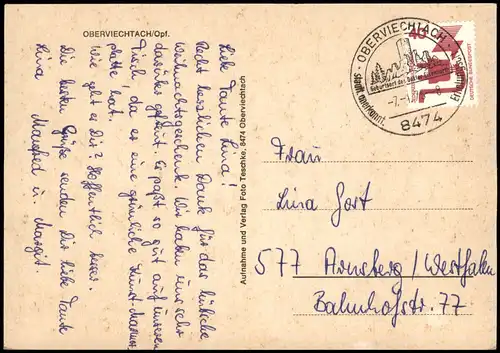 OBERVIECHTACH/Opf.
Liebe Tante Lina!
Recht herzlichen Dank für das hübsche
Weihnachtsgeschenk. Wir haben uns sehr
darüber gefreut. Es paßt so gut auf unseren
Tisch, da es eine grünliche Kunst-Marmor-
platte hat.
Wie geht es Dir? Hoffentlich besser.
Die besten Grüße senden Dir liebe Tante
Lina, Manfred u. Margit.
Aufnahme und Verlag Foto Teschke, 8474 Oberviechtach
OBERVIECHTACH
Geburtsort des Doktor Eisenbarth
staatl. anerkannt.
8474
40
DEUTSCHE BUNDESPOST
Frau
Lina Gort
577 Arnsberg/Westfalen
Bahnhofstr. 77